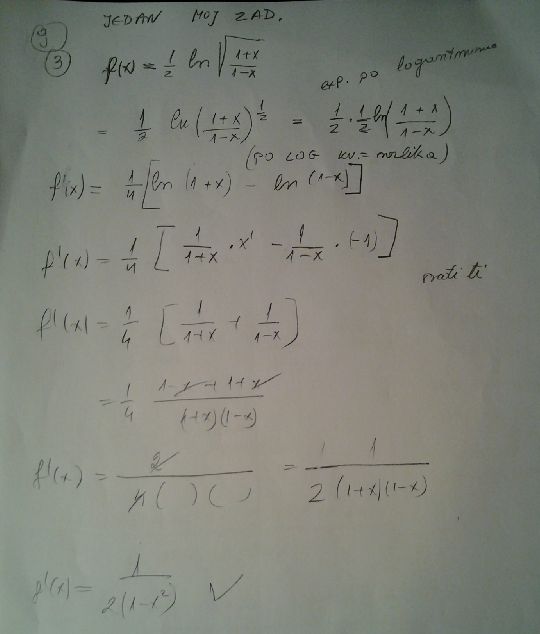 JEDAN MOJ ZAD.
9
3 f(x) = 1/2 ln √((1+x)/(1-x))
= 1/2 ln ((1+x)/(1-x))^(1/2) = 1/2 · 1/2 ln((1+x)/(1-x))
(PO LOG kv. = razlika)
f'(x) = 1/4 [ln (1+x) - ln (1-x)]
f'(x) = 1/4 [1/(1+x) · x' - 1/(1-x) · (-1)]
f'(x) = 1/4 [1/(1+x) + 1/(1-x)]
= 1/4 (1-x+1+x)/((1+x)(1-x))
f'(x) = 2/(4( )( )) = 1/(2(1+x)(1-x))
f'(x) = 1/(2(1-x²)) ✓